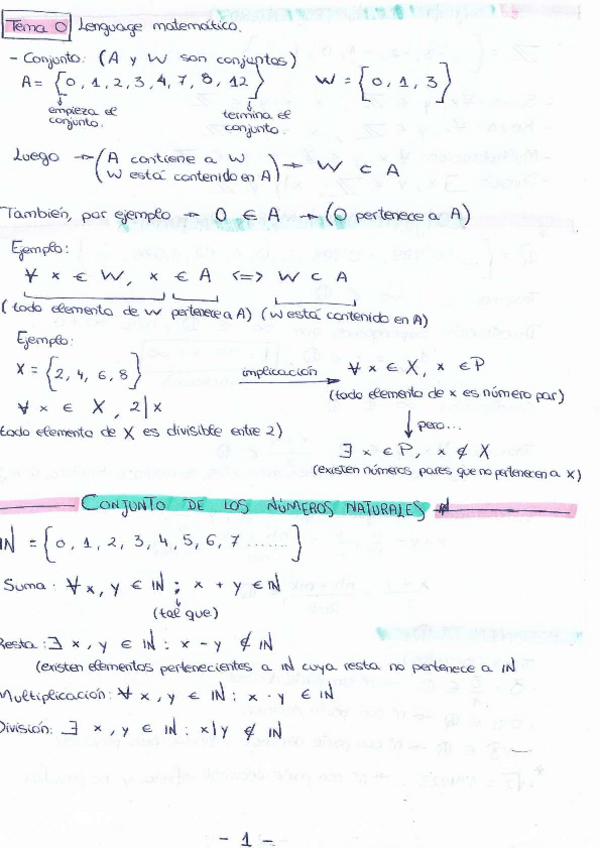 Tema 0 Lenguage matemático.
- Conjunto: (A y W son conjuntos)
A = {0, 1, 2, 3, 4, 7, 8, 12} W = {0, 1, 3}
empieza el conjunto. termina el conjunto.
Luego → (A contiene a W
W está contenido en A) → W ⊂ A
También, por ejemplo → 0 ∈ A → (0 pertenece a A)
Ejemplo:
∀ x ∈ W, x ∈ A <=> W ⊂ A
(todo elemento de W pertenece a A) (W está contenido en A)
Ejemplo:
X = {2, 4, 6, 8} implicación → ∀ x ∈ X, x ∈ P
(todo elemento de x es número par)
∀ x ∈ X, 2|x ↓ pero...
todo elemento de X es divisible entre 2) ∃ x ∈ P, x ∉ X
(existen números pares que no pertenecen a X)
CONJUNTO DE LOS NÚMEROS NATURALES ℕ
ℕ = {0, 1, 2, 3, 4, 5, 6, 7 .......}
Suma: ∀ x, y ∈ ℕ ; x + y ∈ ℕ
(tal que)
Resta: ∃ x, y ∈ ℕ : x - y ∉ ℕ
(existen elementos pertenecientes a ℕ cuya resta no pertenece a ℕ
Multiplicación: ∀ x, y ∈ ℕ : x · y ∈ ℕ
División: ∃ x, y ∈ ℕ : x|y ∉ ℕ
- 1 -